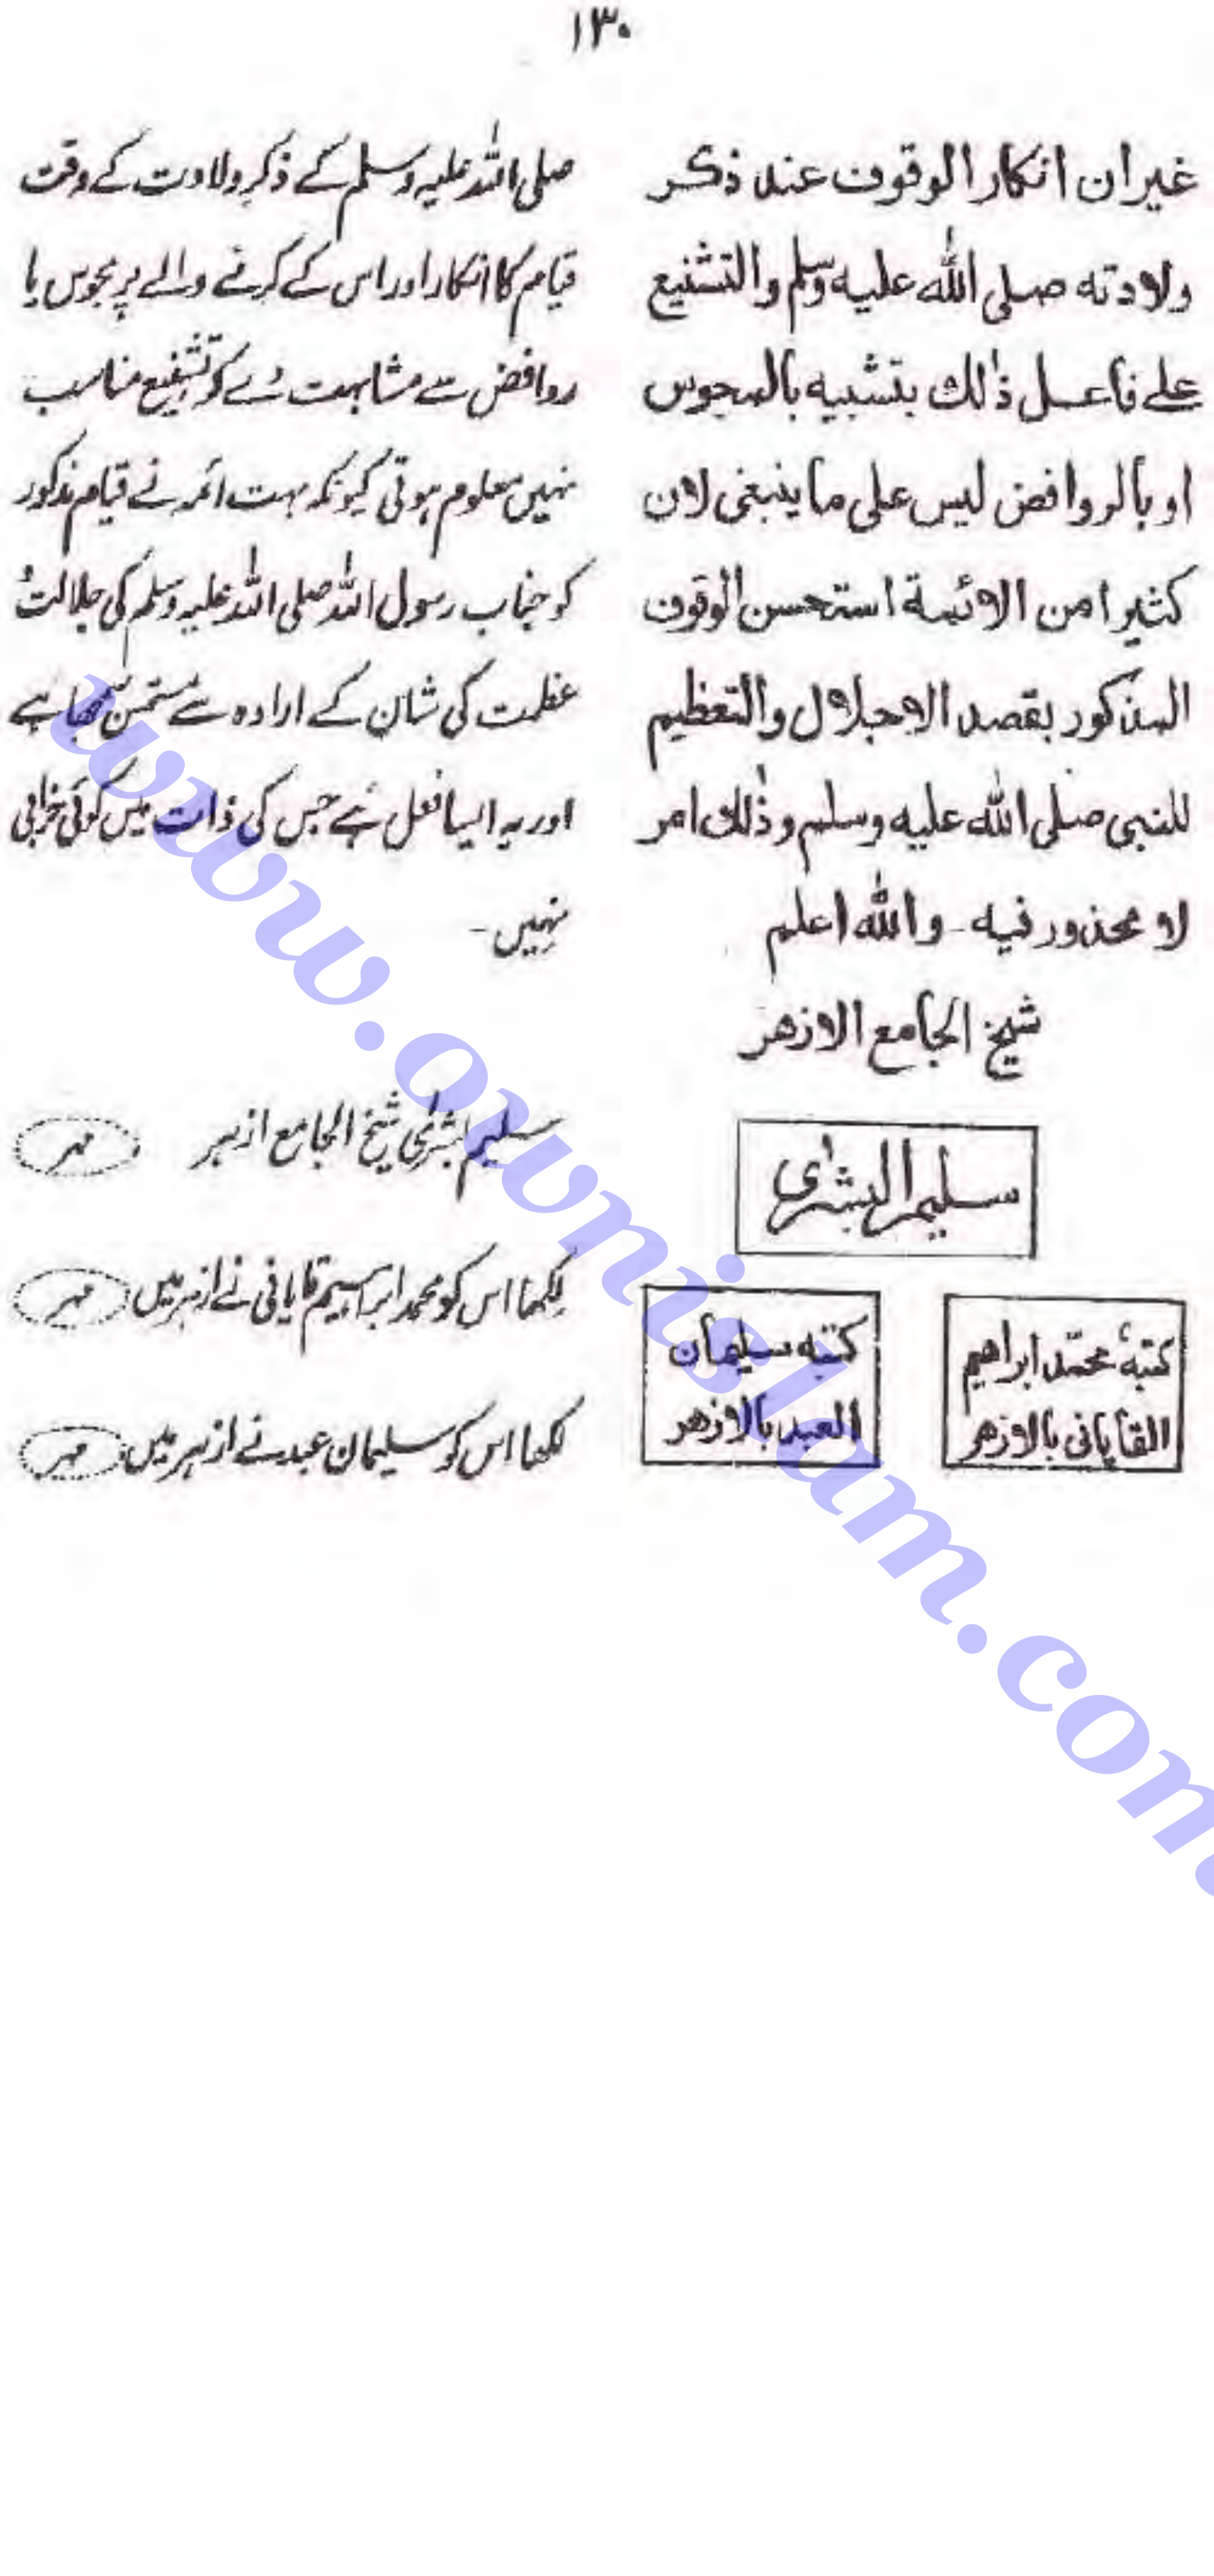 ۱۳۰
غیران انکار الوقوف عند ذکر
ولادته صلی اللہ علیه وسلم والتشنیع
علے فاعل ذٰلك بتشبیه بالمجوس
او بالروافض لیس علی ما ینبغی لان
کثیرا من الائمة استحسن الوقوف
المذکور بقصد الاجلال والتعظیم
للنبی صلی اللہ علیه وسلم وذٰلك امر
لا محذور فیه - واللہ اعلم
شیخ الجامع الازهر
سلیم البشری
کتبهٗ محمّد ابراهیم
القایانی بالازهر
کتبه سلیمان
العبد بالازهر
صلی اللہ علیہ وسلم کے ذکر ولادت کے وقت
قیام کا انکار اور اس کے کرنے والے پر مجوس یا
روافض سے مشابہت دے کر تشنیع مناسب
نہیں معلوم ہوتی کیونکہ بہت ائمہ نے قیام مذکور
کو جناب رسول اللہ صلی اللہ علیہ وسلم کی جلالت و
عظمت کی شان کے ارادہ سے مستحسن سمجھا ہے
اور یہ ایسا فعل ہے جس کی ذات میں کوئی خرابی
نہیں -
سلیم بشری شیخ الجامع ازہر مہر
لکھا اس کو محمد ابراہیم قایانی نے ازہر میں مہر
لکھا اس کو سلیمان عبد نے ازہر میں مہر
www.ownislam.com